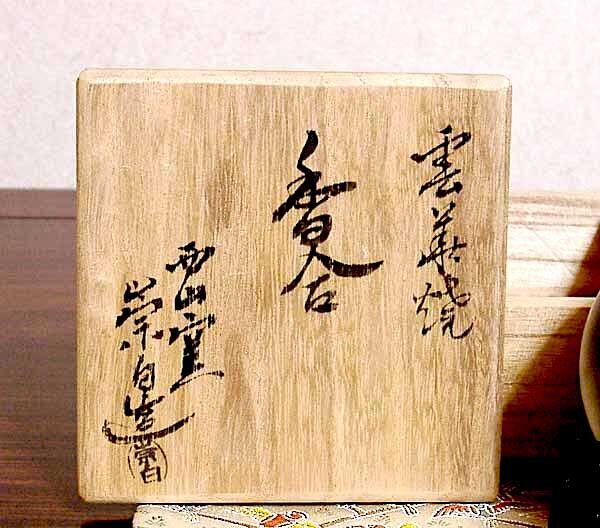 雲華焼
香合
西山窯
崇白造
崇白